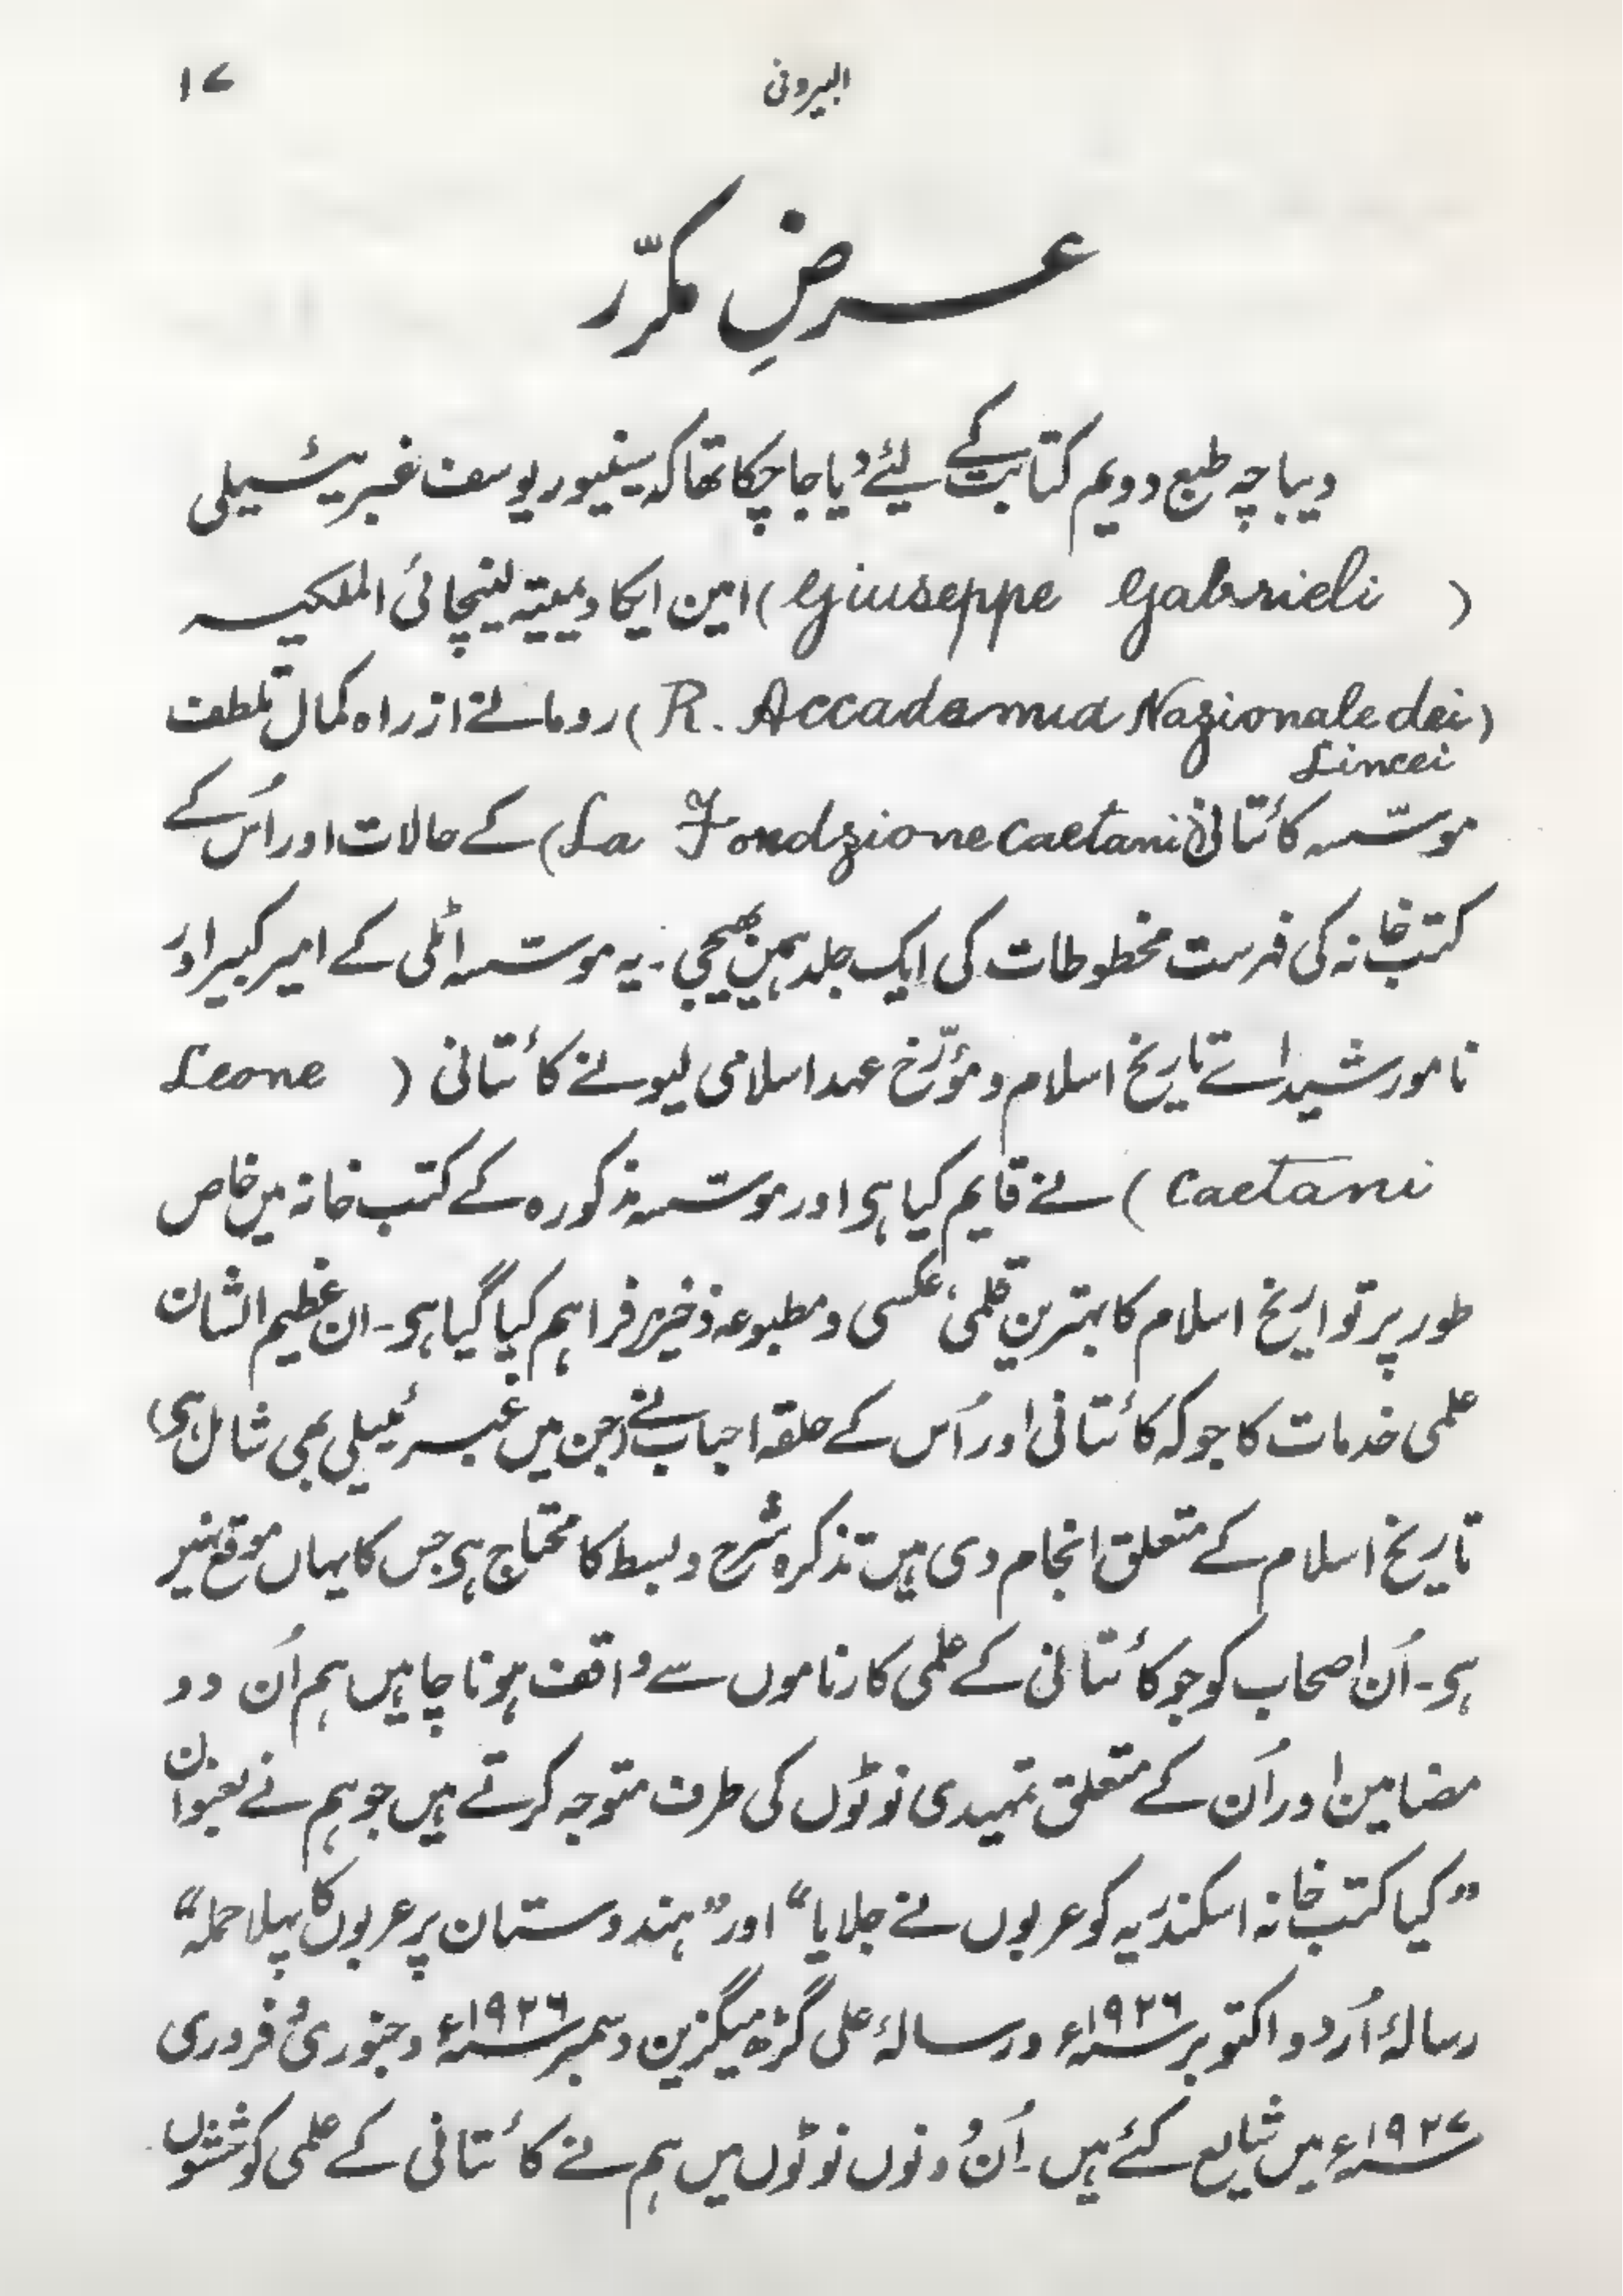 البیرونی ۱۷
عرضِ مکرّر
دیباچہ طبع دویم کتابت کے لئے دیا جا چکا تھا کہ سینیور یوسف غبریئیلی
(Giuseppe Gabrieli) امین ایکادیمیتہ لینچائی الملکیہ
(R. Accademia Nazionale dei Lincei) روما نے از راہ کمال تلطف
موسّسہ کائتانی (La Fondzione Caetani) کے حالات اور اُس کے
کتب خانہ کی فہرست مخطوطات کی ایک جلد ہمین بھیجی ۔ یہ موسّسہ اٹلی کے امیر کبیر اور
نامور شیدائے تاریخ اسلام و مؤرّخ عہد اسلامی لیونے کائتانی (Leone
Caetani) نے قایم کیا ہی اور موسّسہ مذکورہ کے کتب خانہ میں خاص
طور پر تواریخ اسلام کا بہترین قلمی، عکسی و مطبوعہ ذخیرہ فراہم کیا گیا ہی ۔ ان عظیم الشان
علمی خدمات کا جو کہ کائتانی اور اُس کے حلقہ احباب نے (جن میں غبرئیلی بھی شامل ہی)
تاریخ اسلام کے متعلق انجام دی ہیں تذکرہ شرح و بسط کا محتاج ہی جس کا یہاں موقع نہیں
ہی ۔ اُن اصحاب کو جو کائتانی کے علمی کارناموں سے واقف ہونا چاہیں ہم اُن دو
مضامین اور اُن کے متعلق تمہیدی نوٹوں کی طرف متوجہ کرتے ہیں جو ہم نے بعنوان
”کیا کتب خانہ اسکندریہ کو عربوں نے جلایا“ اور ”ہندوستان پر عربوں کا پہلا حملہ“
رسالۂ اُردو اکتوبر ۱۹۲۶ء و رسالۂ علی گڑھ میگزین دسمبر ۱۹۲۶ء و جنوری و فروری
۱۹۲۷ء میں شایع کئے ہیں ۔ اُن دونوں نوٹوں میں ہم نے کائتانی کے علمی کوششوں